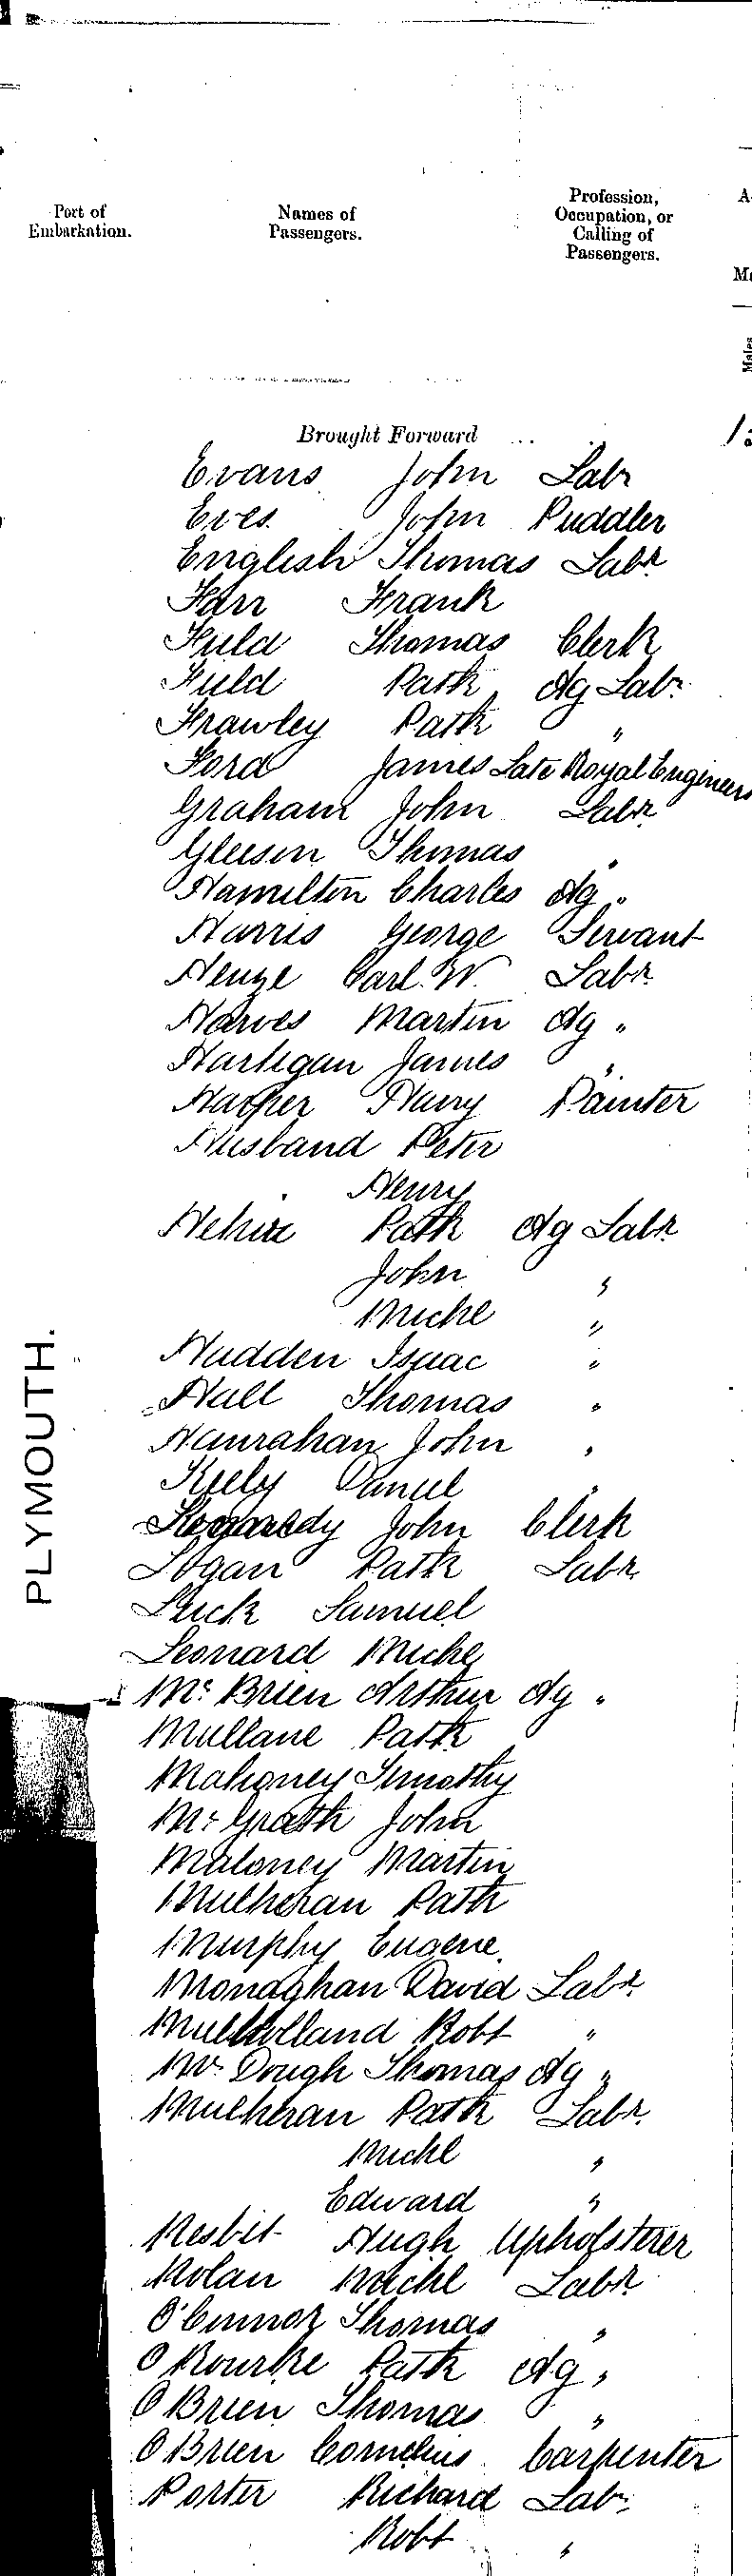 Port of Embarkation.
Names of Passengers.
Profession, Occupation, or Calling of Passengers.
Males
Brought Forward ...
Evans John Labr
Eves John Puddler
English Thomas Labr
Farr Frank
Fuld Thomas Clerk
Fuld Patk Ag Labr
Frawley Patk "
Ford James Late Royal Engineers
Graham John Labr
Gleeson Thomas "
Hamilton Charles Ag "
Harris George Servant
Henze Carl W. Labr
Harves Martin Ag "
Hartigan James "
Harper Harry Painter
Husband Peter
Henry
Patk Ag Labr
John "
Michl "
Hudden Isaac "
Hall Thomas "
Hanrahan John "
Kiely Daniel "
John Clerk
Logan Patk Labr
Luck Samuel
Leonard Michl
Mc Brien Arthur Ag "
Mullane Patk
Mahoney Timothy
Mc Grath John
Maloney Martin
Mulheran Patk
Murphy Eugene
Monaghan David Labr
Mullholland Robt "
Thomas Ag "
Mulheran Patk Labr
Michl "
Edward "
Nesbit Hugh Upholsterer
Nolan Michl Labr
O'Connor Thomas "
O Rourke Patk Ag "
O Brien Thomas "
O Brien Cornelius Carpenter
Porter Richard Labr
Robt "
PLYMOUTH.